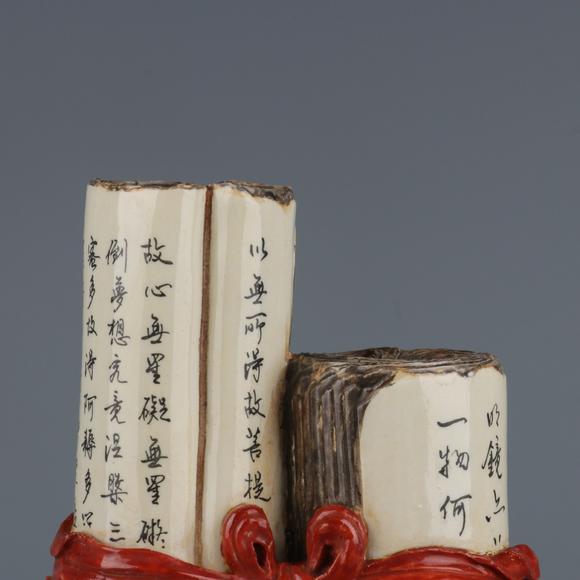 明鏡亦
一物何
以無所得故菩提
故心無罣礙無罣礙
倒夢想究竟涅槃三
多故得阿耨多